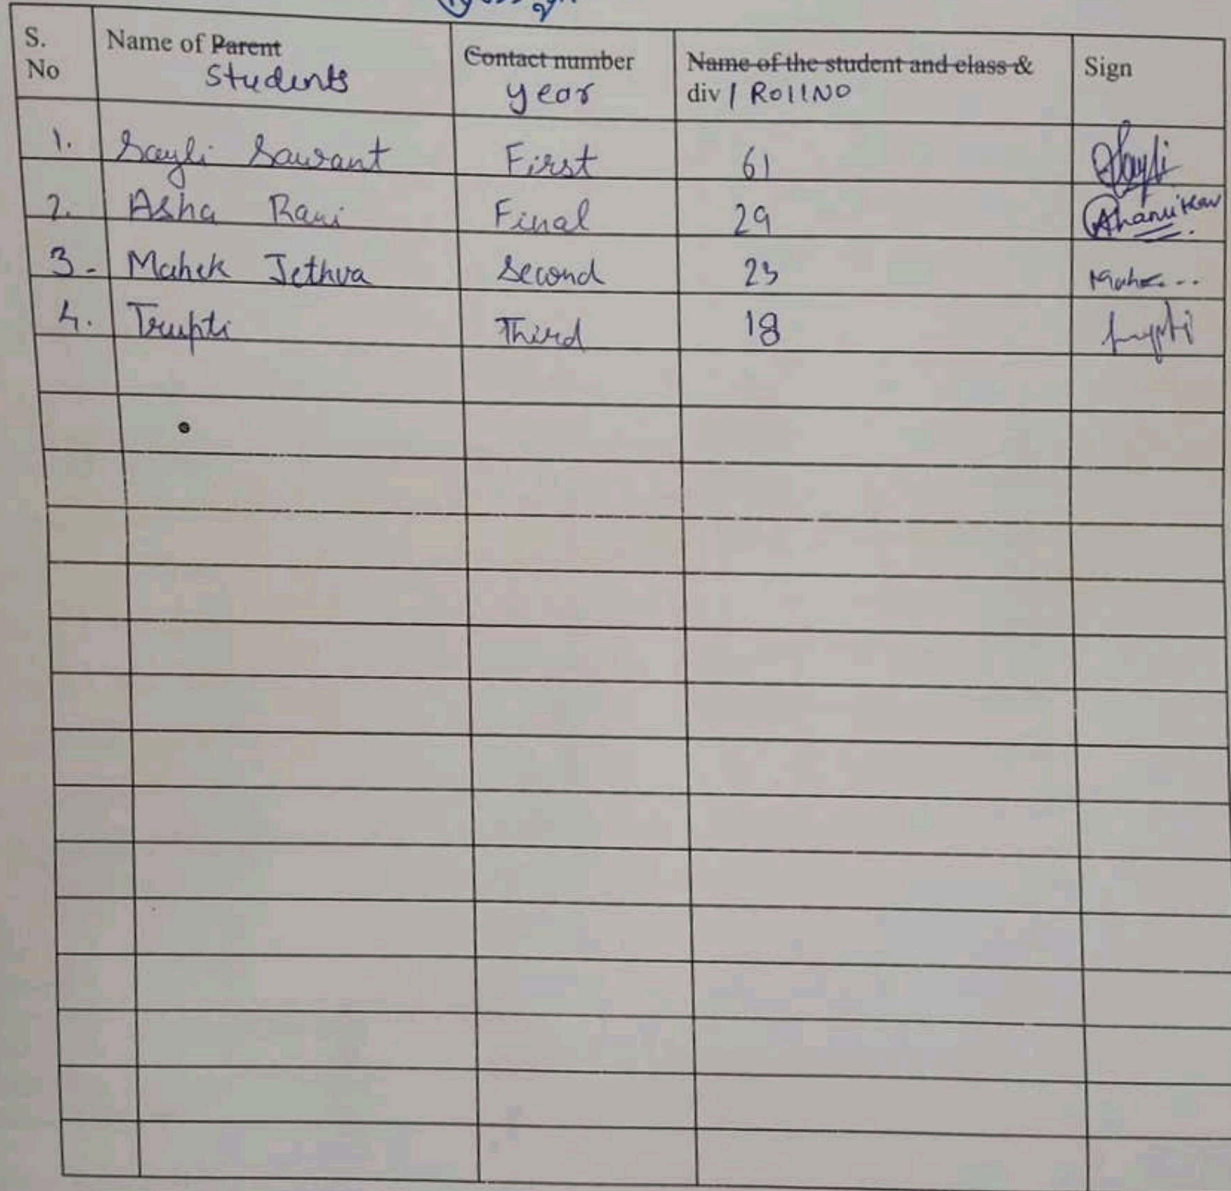 S. No Name of Parent Students Contact number year Name of the student and class & div / Roll NO Sign
1. Sayli Sawant First 61 Sayli
2. Asha Rani Final 29
3- Mahek Jethva Second 23
4. Trupti Third 18 Trupti